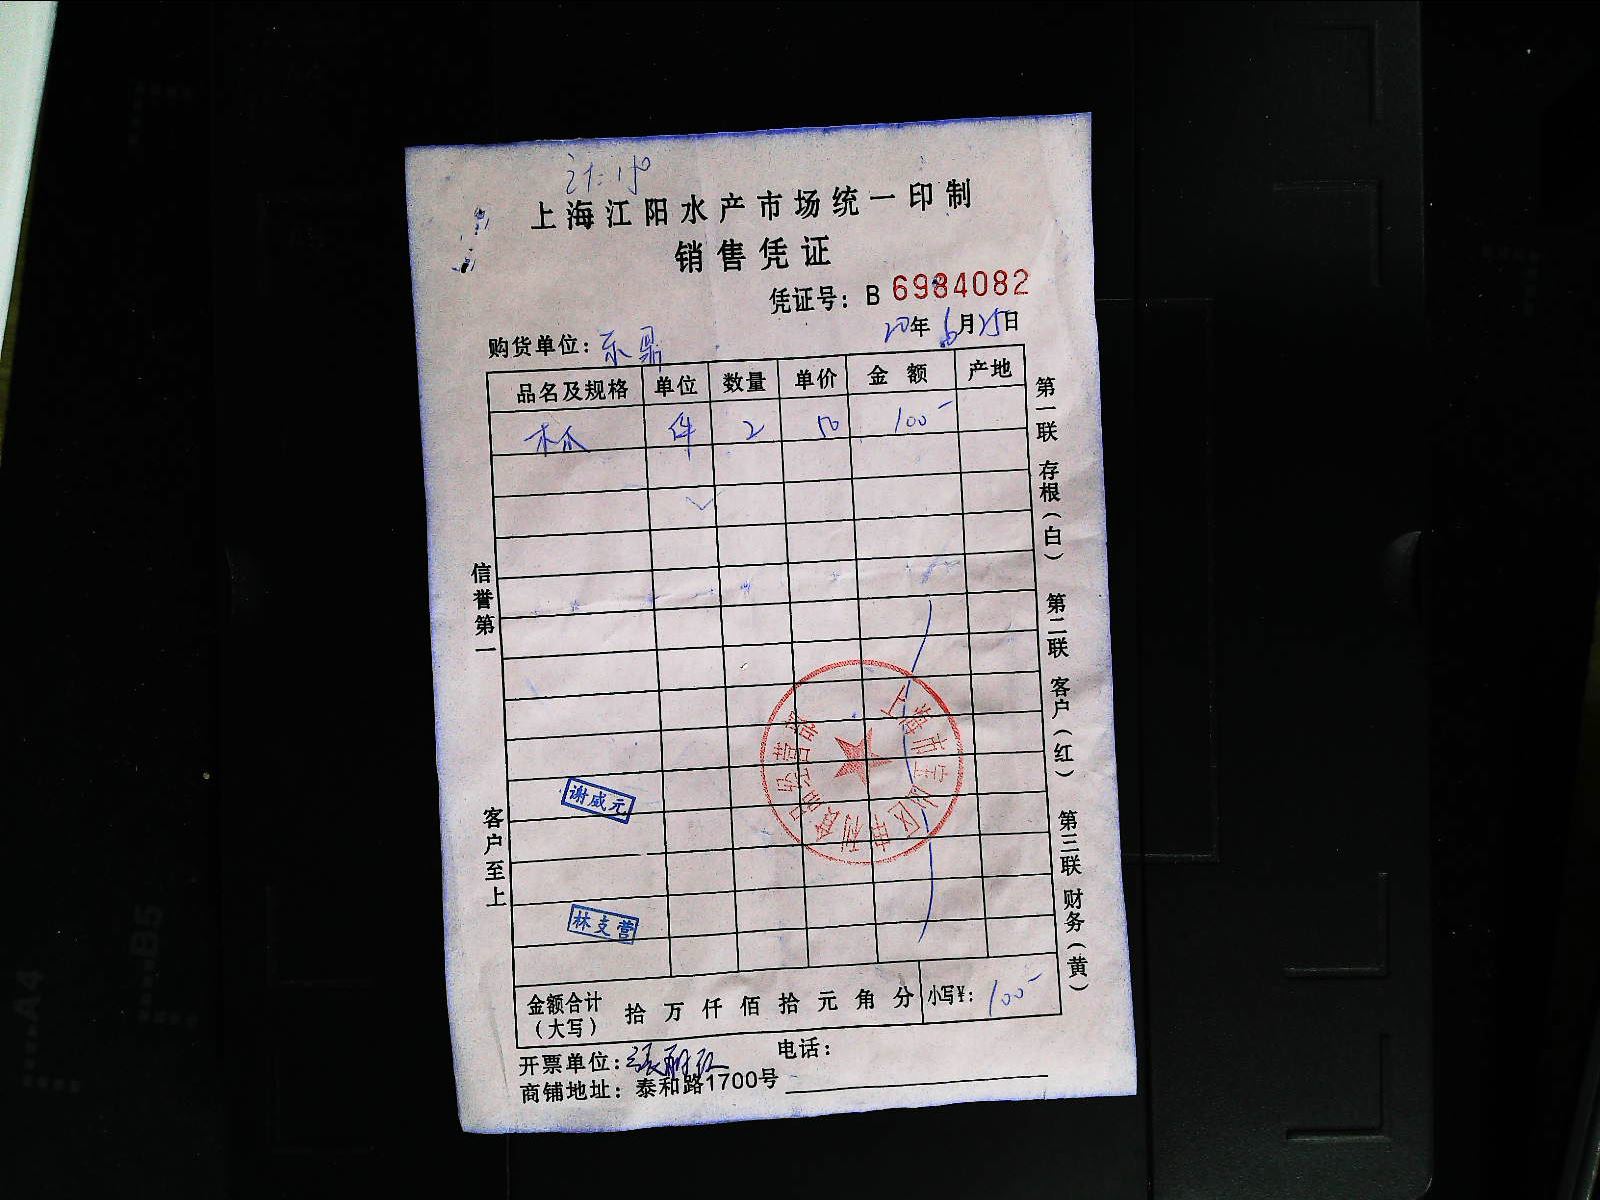 上海江阳水产市场统一印制
销售凭证
凭证号：B 6984082
购货单位：东鼎 20年6月25日
品名及规格 单位 数量 单价 金额 产地
木瓜 件 2 50 100-
第一联 存根（白） 第二联 客户（红） 第三联 财务（黄）
信誉第一 客户至上
上海市宝山区申利食品经营部
谢威元
林支营
金额合计（大写） 拾 万 仟 佰 拾 元 角 分 小写￥：100-
开票单位： 电话：
商铺地址：泰和路1700号